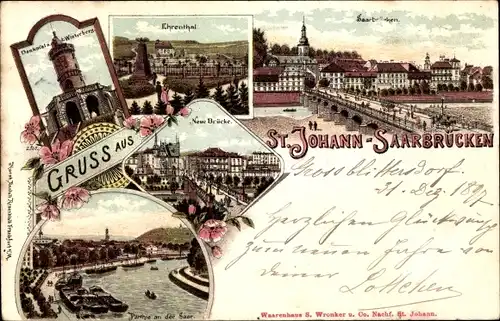 Denkmal a. d. Winterberg
Ehrenthal.
Saarbrücken.
Neue Brücke.
GRUSS AUS
ST. JOHANN-SAARBRÜCKEN
Grossblittersdorf.
21. Dez. 1897.
Herzlichen Glückwunsch
zum neuen Jahre von
Deiner
Lottchen
Partie an der Saar.
Waarenhaus S. Wronker u. Co. Nachf. St. Johann.